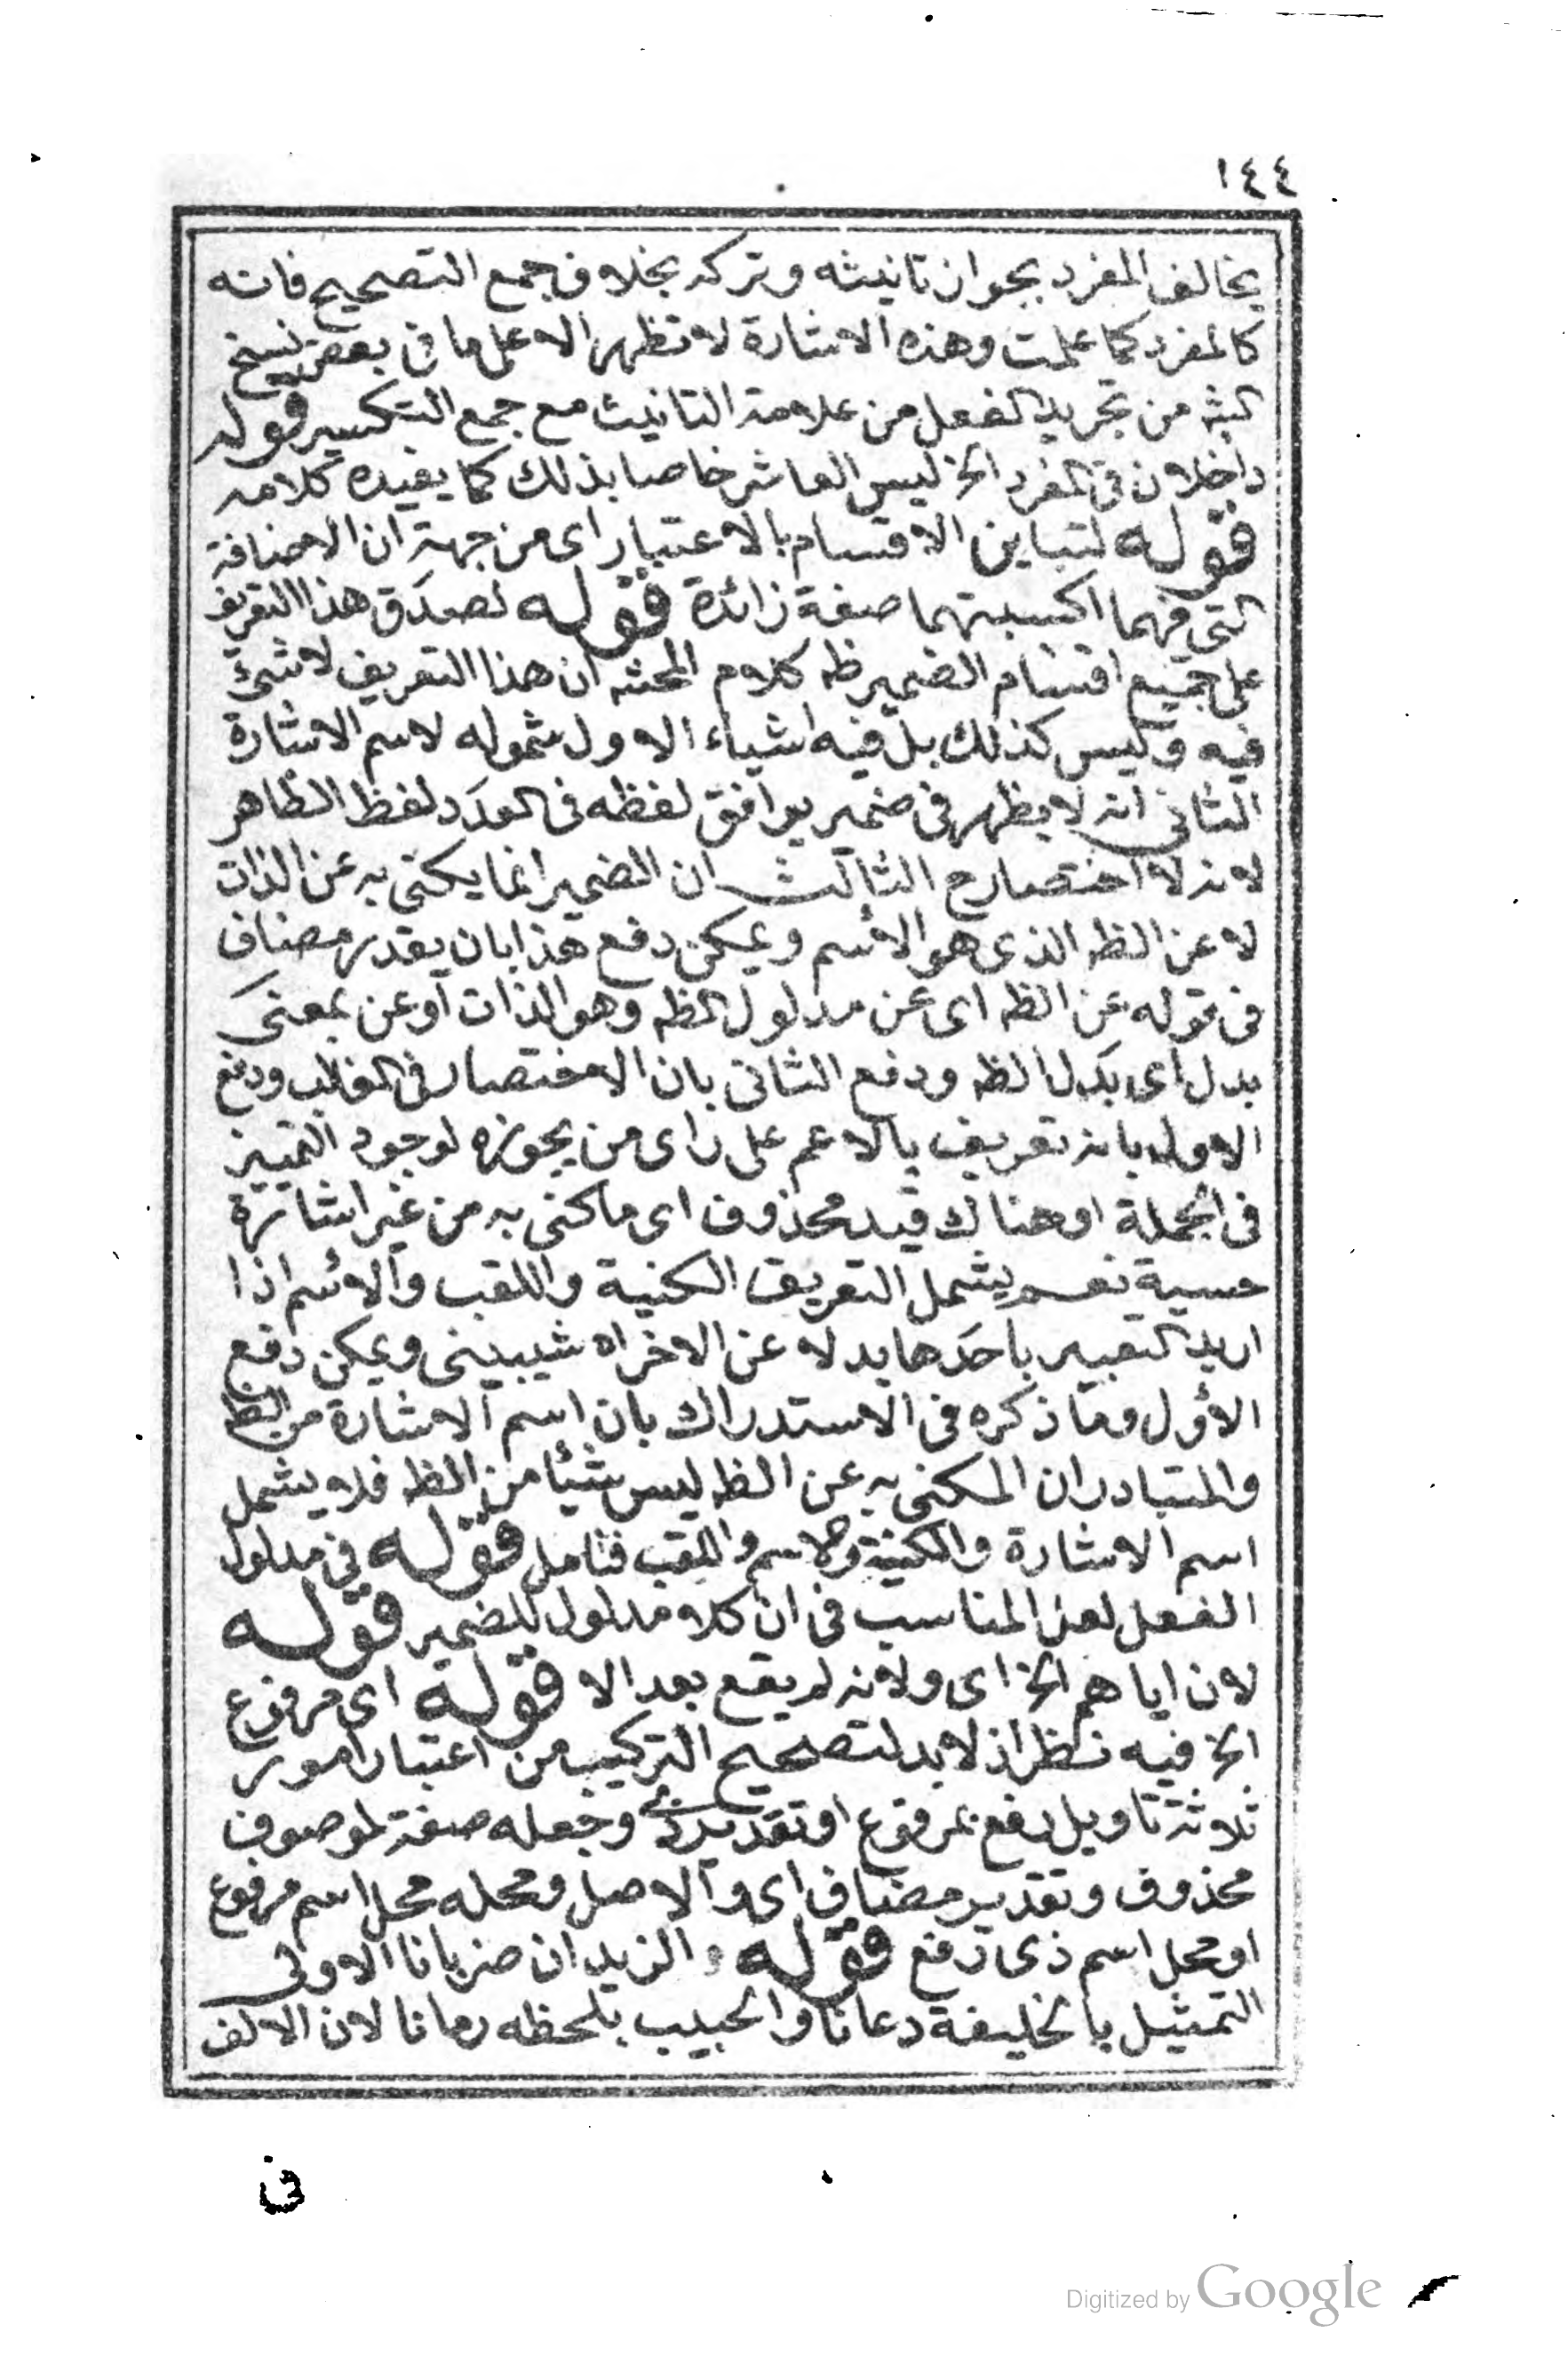 ١٤٤
يخالف المفرد بجواز تانيثه وتركه بخلاف جمع التصحيح فانه
كالمفرد كما علمت وهذه الاشارة لا تظهر الا على ما فى بعض نسخ
الش من تجريد الفعل من علامة التانيث مع جمع التكسير قوله
داخلان فى المفرد الخ ليس العاشر خاصا بذلك كما يفيده كلامه
قوله لتباين الاقسام بالاعتبار اى من جهة ان الاضافة
التى فيهما اكسبتهما صفة زائدة قوله لصدق هذا التعريف
على جميع اقسام الضمير ظه كلام المحشه ان هذا التعريف لا شئ
فيه وليس كذلك بل فيه اشياء الاول شموله لاسم الاشارة
الثانى انه لا يظهر فى ضمير يوافق لفظه فى العدد لفظ الظاهر
لانه لا اختصارح الثالث ان الضمير انما يكنى به عن الذات
لا عن الظه الذى هو الاسم ويمكن دفع هذا بان يقدر مضاف
فى قوله عن الظه اى عن مدلول الظه وهو الذات او عن بمعنى
بدل اى بدل الظه ودفع الثانى بان الاختصار فى الغالب ودفع
الاول بانه تعريف بالاعم على راى من يجوزه لوجود التمييز
فى الجملة او هناك قيد محذوف اى ما كنى به من غير اشارة
حسية نعم يشمل التعريف الكنية واللقب والاسم اذا
اريد التعبير باحدها بدلا عن الاخر اه شيبينى ويمكن دفع
الاول وما ذكره فى الاستدراك بان اسم الاشارة من الظ
والمتبادر ان المكنى به عن الظه ليس شيئا من الظه فلا يشمل
اسم الاشارة والكنية والاسم واللقب فتامل قوله فى مدلول
الفعل لعل المناسب فى ان كلا مدلول للضمير قوله
لان اياهم الخ اى ولانه لم يقع بعد الا قوله اى مرفوع
الخ فيه نظر اذ لا بد لتصحيح التركيب من اعتبار امور
ثلاثة تاويل رفع بمرفوع او تقدير ذى وجعله صفة لموصوف
محذوف وتقدير مضاف اى والاصل ومحله محل اسم مرفوع
او محل اسم ذى رفع قوله والزيدان ضربانا الاولى
التمثيل بالخليفة دعانا والحبيب بلحظه رمانا لان الالف
فى
Digitized by Google